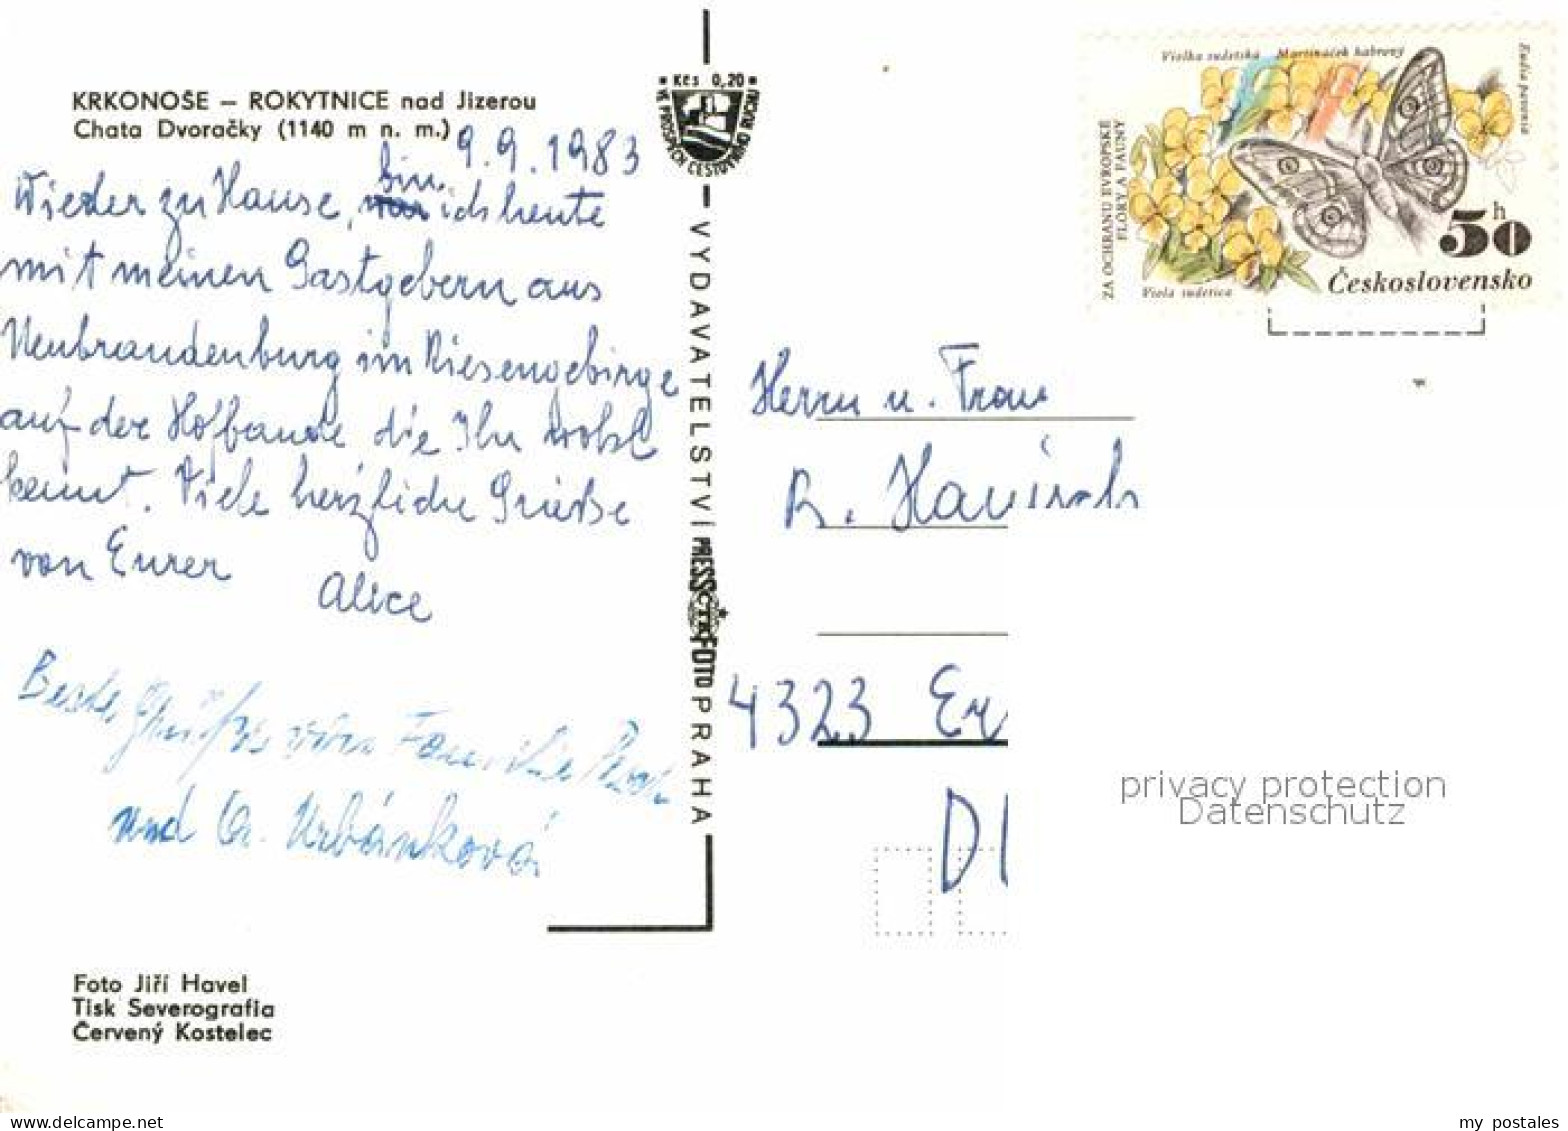 KRKONOŠE – ROKYTNICE nad Jizerou
Chata Dvoračky (1140 m n. m.)
9.9.1983
Wieder zu Hause, bin ich heute
mit meinen Gastgebern aus
Neubrandenburg im Riesengebirge
auf der Hofbaude, die Ihr wohl
kennt. Viele herzliche Grüße
von Eurer
Alice
Beste Grüße von Familie
und A. Urbánková
Foto Jiří Havel
Tisk Severografia
Červený Kostelec
Kčs 0,20
VE PROSPĚCH CESTOVNÍHO RUCHU
VYDAVATELSTVÍ PRESSFOTO PRAHA
ČTK
Violka sudetská Martináček habrový
Eudia pavonia
ZA OCHRANU EVROPSKÉ
FLÓRY A FAUNY
Viola sudetica
50 h
Československo
Herrn u. Frau
R.
4323 Er
D
privacy protection
Datenschutz
my postales